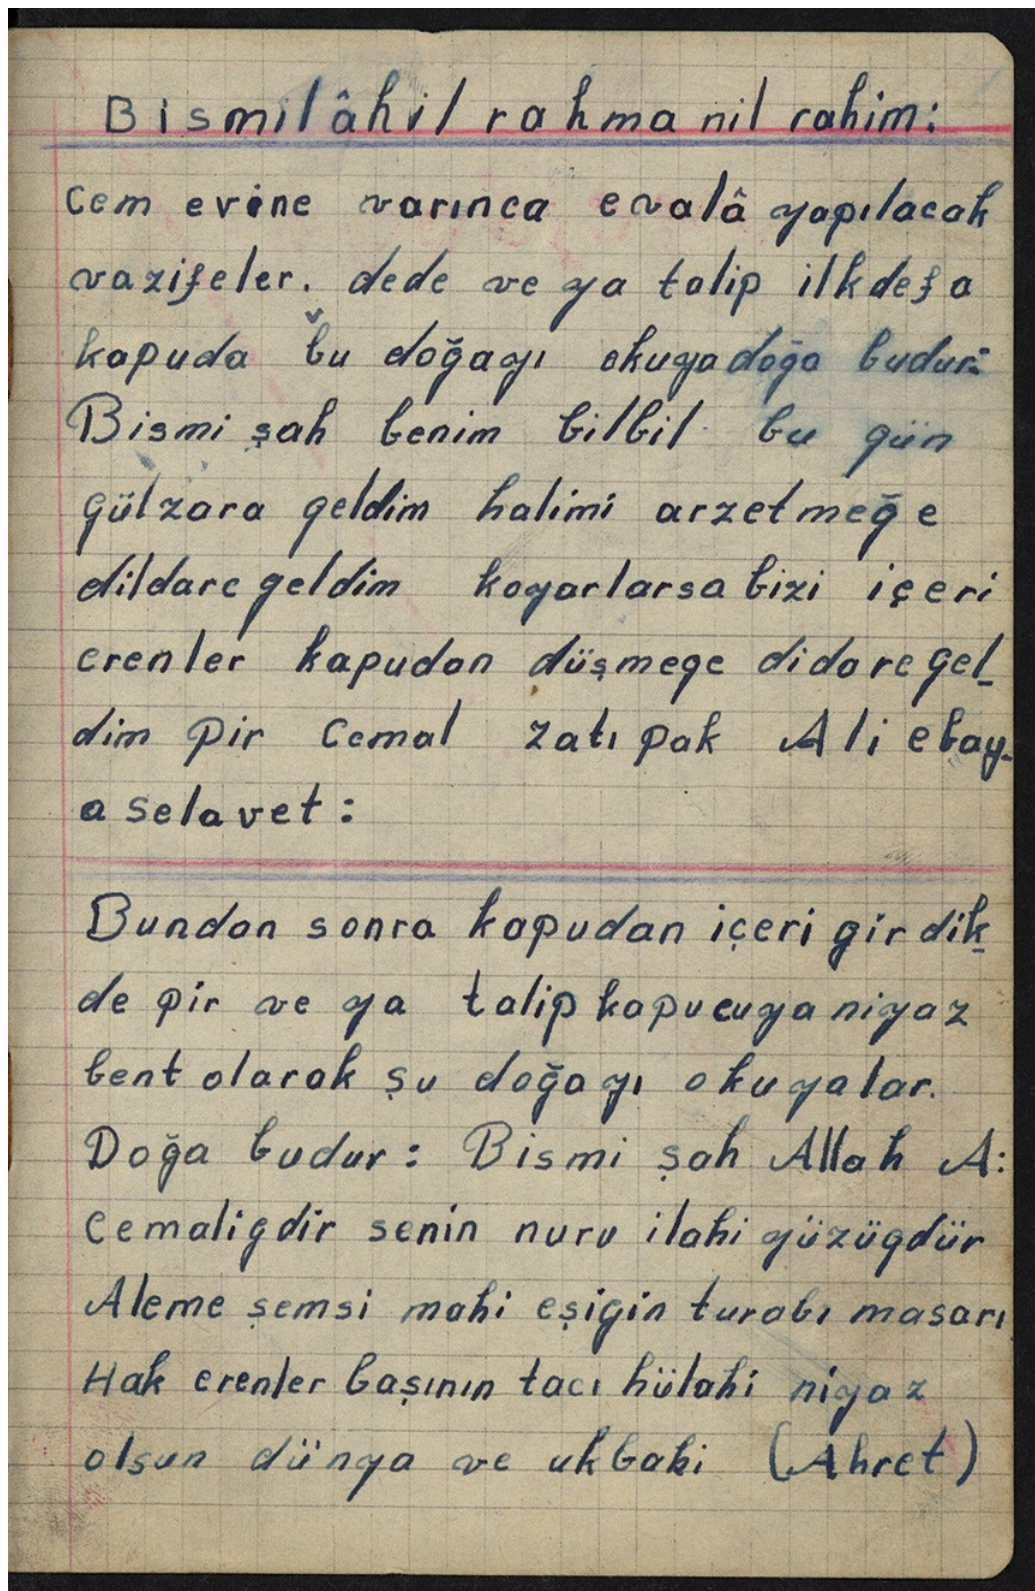 Bismilâhil rahmanil rahim:
Cem evine varınca evalâ yapılacak
vazifeler. dede ve ya talip ilkdefa
kapuda bu doğayı okuya doğa budur:
Bismi şah benim bilbil bu gün
gülzara geldim halimi arzetmeğe
dildare geldim koyarlarsa bizi içeri
erenler kapudan düşmege didare gel_
dim pir Cemal zatı pak Ali ebay-
a selavet:
Bundan sonra kapudan içeri girdik
de pir ve ya talip kapucuya niyaz
bent olarak şu doğayı okuyalar.
Doğa budur: Bismi şah Allah A:
Cemaligdir senin nuru ilahi yüzügdür
Aleme şemsi mahi eşigin turabı masarı
Hak erenler başının tacı hülahi niyaz
olsun dünya ve ukbahi (Ahret)